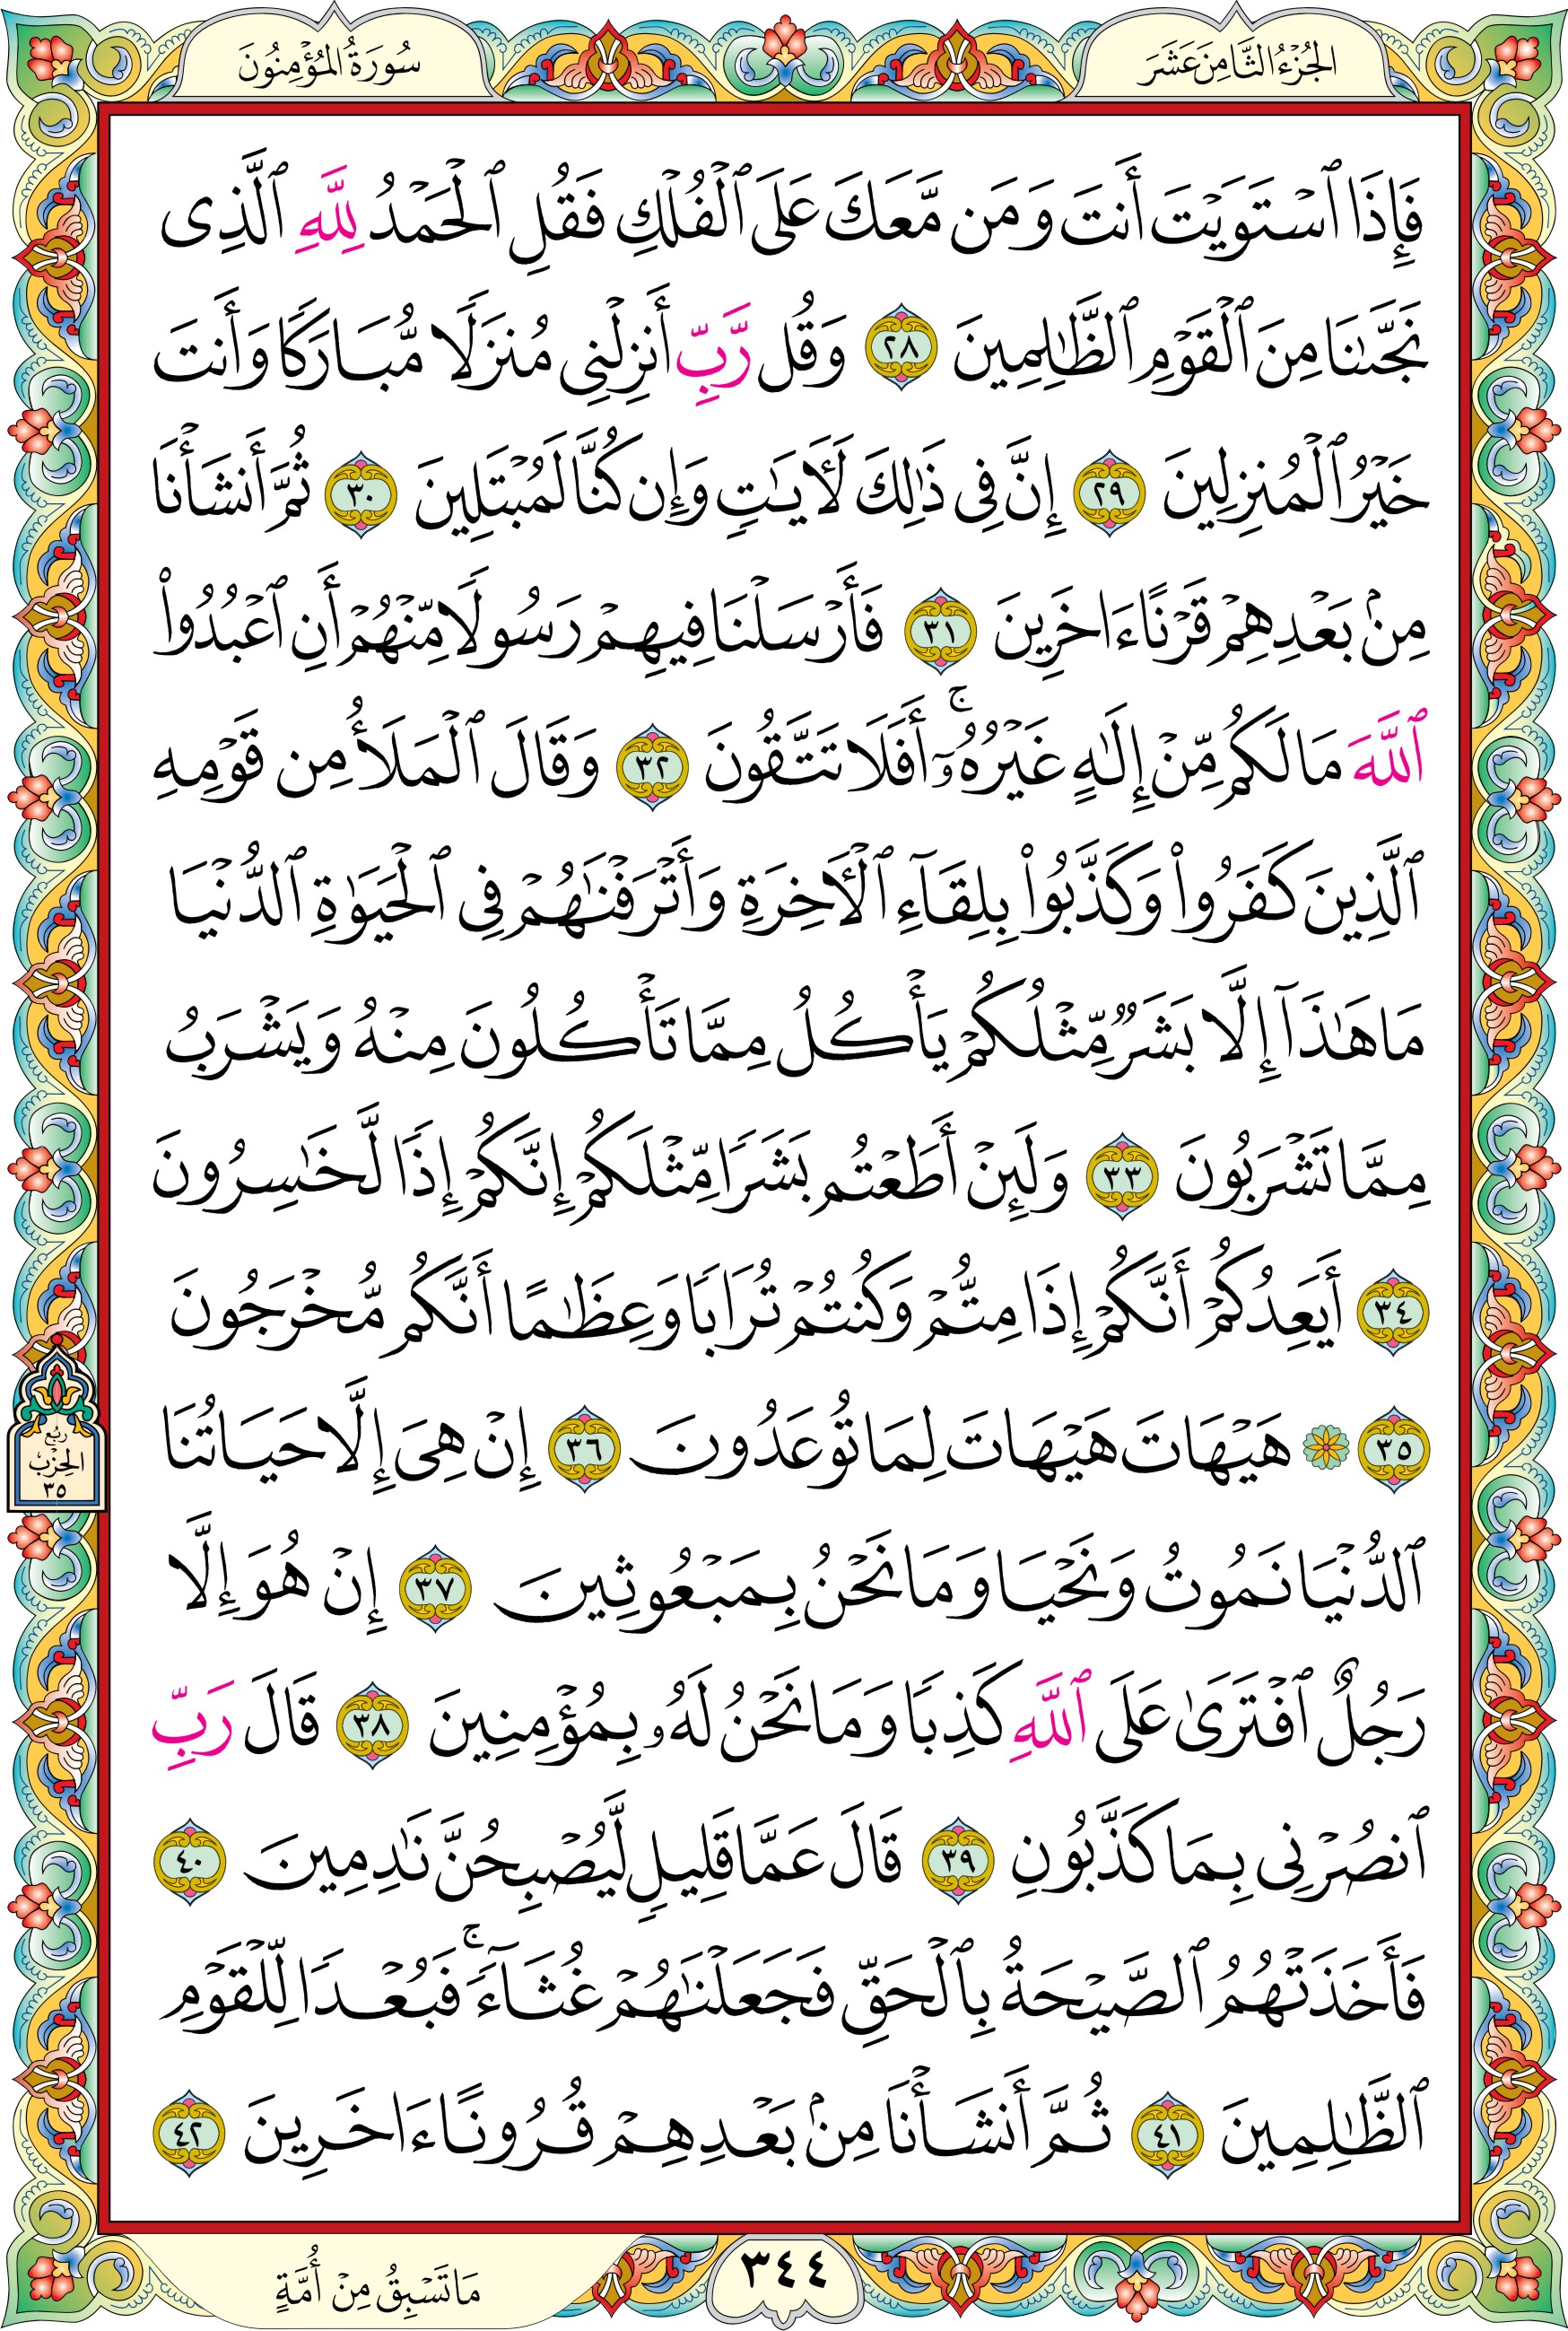 الجُزْءُ الثَّامِنَ عَشَرَ
سُورَةُ المُؤْمِنُونَ
فَإِذَا ٱسْتَوَيْتَ أَنتَ وَمَن مَّعَكَ عَلَى ٱلْفُلْكِ فَقُلِ ٱلْحَمْدُ لِلَّهِ ٱلَّذِى
نَجَّىٰنَا مِنَ ٱلْقَوْمِ ٱلظَّٰلِمِينَ ٢٨ وَقُل رَّبِّ أَنزِلْنِى مُنزَلًا مُّبَارَكًا وَأَنتَ
خَيْرُ ٱلْمُنزِلِينَ ٢٩ إِنَّ فِى ذَٰلِكَ لَءَايَٰتٍ وَإِن كُنَّا لَمُبْتَلِينَ ٣٠ ثُمَّ أَنشَأْنَا
مِنۢ بَعْدِهِمْ قَرْنًا ءَاخَرِينَ ٣١ فَأَرْسَلْنَا فِيهِمْ رَسُولًا مِّنْهُمْ أَنِ ٱعْبُدُوا۟
ٱللَّهَ مَا لَكُم مِّنْ إِلَٰهٍ غَيْرُهُۥٓ ۚ أَفَلَا تَتَّقُونَ ٣٢ وَقَالَ ٱلْمَلَأُ مِن قَوْمِهِ
ٱلَّذِينَ كَفَرُوا۟ وَكَذَّبُوا۟ بِلِقَآءِ ٱلْءَاخِرَةِ وَأَتْرَفْنَٰهُمْ فِى ٱلْحَيَوٰةِ ٱلدُّنْيَا
مَا هَٰذَآ إِلَّا بَشَرٌ مِّثْلُكُمْ يَأْكُلُ مِمَّا تَأْكُلُونَ مِنْهُ وَيَشْرَبُ
مِمَّا تَشْرَبُونَ ٣٣ وَلَئِنْ أَطَعْتُم بَشَرًا مِّثْلَكُمْ إِنَّكُمْ إِذًا لَّخَٰسِرُونَ
٣٤ أَيَعِدُكُمْ أَنَّكُمْ إِذَا مِتُّمْ وَكُنتُمْ تُرَابًا وَعِظَٰمًا أَنَّكُم مُّخْرَجُونَ
٣٥ ۞ هَيْهَاتَ هَيْهَاتَ لِمَا تُوعَدُونَ ٣٦ إِنْ هِىَ إِلَّا حَيَاتُنَا
رُبْعُ
الحِزْب
٣٥
ٱلدُّنْيَا نَمُوتُ وَنَحْيَا وَمَا نَحْنُ بِمَبْعُوثِينَ ٣٧ إِنْ هُوَ إِلَّا
رَجُلٌ ٱفْتَرَىٰ عَلَى ٱللَّهِ كَذِبًا وَمَا نَحْنُ لَهُۥ بِمُؤْمِنِينَ ٣٨ قَالَ رَبِّ
ٱنصُرْنِى بِمَا كَذَّبُونِ ٣٩ قَالَ عَمَّا قَلِيلٍ لَّيُصْبِحُنَّ نَٰدِمِينَ ٤٠
فَأَخَذَتْهُمُ ٱلصَّيْحَةُ بِٱلْحَقِّ فَجَعَلْنَٰهُمْ غُثَآءً ۚ فَبُعْدًا لِّلْقَوْمِ
ٱلظَّٰلِمِينَ ٤١ ثُمَّ أَنشَأْنَا مِنۢ بَعْدِهِمْ قُرُونًا ءَاخَرِينَ ٤٢
٣٤٤
مَا تَسْبِقُ مِنْ أُمَّةٍ